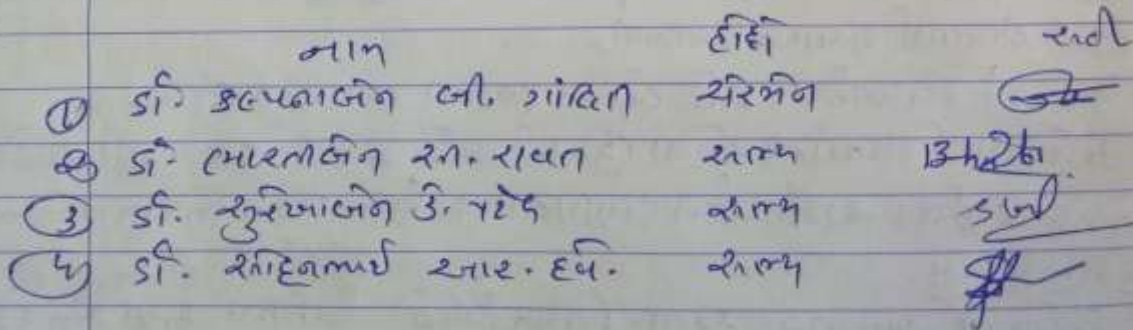 નામ હોદ્દો સહી
① ડૉ. કલ્પનાબેન બી. ગાંવિત ચેરમેન
② ડૉ. ભારતીબેન એન. રાવત સભ્ય
③ ડૉ. સુરેખાબેન કે. પટેલ સભ્ય
④ ડૉ. રોહિતભાઈ આર. સભ્ય